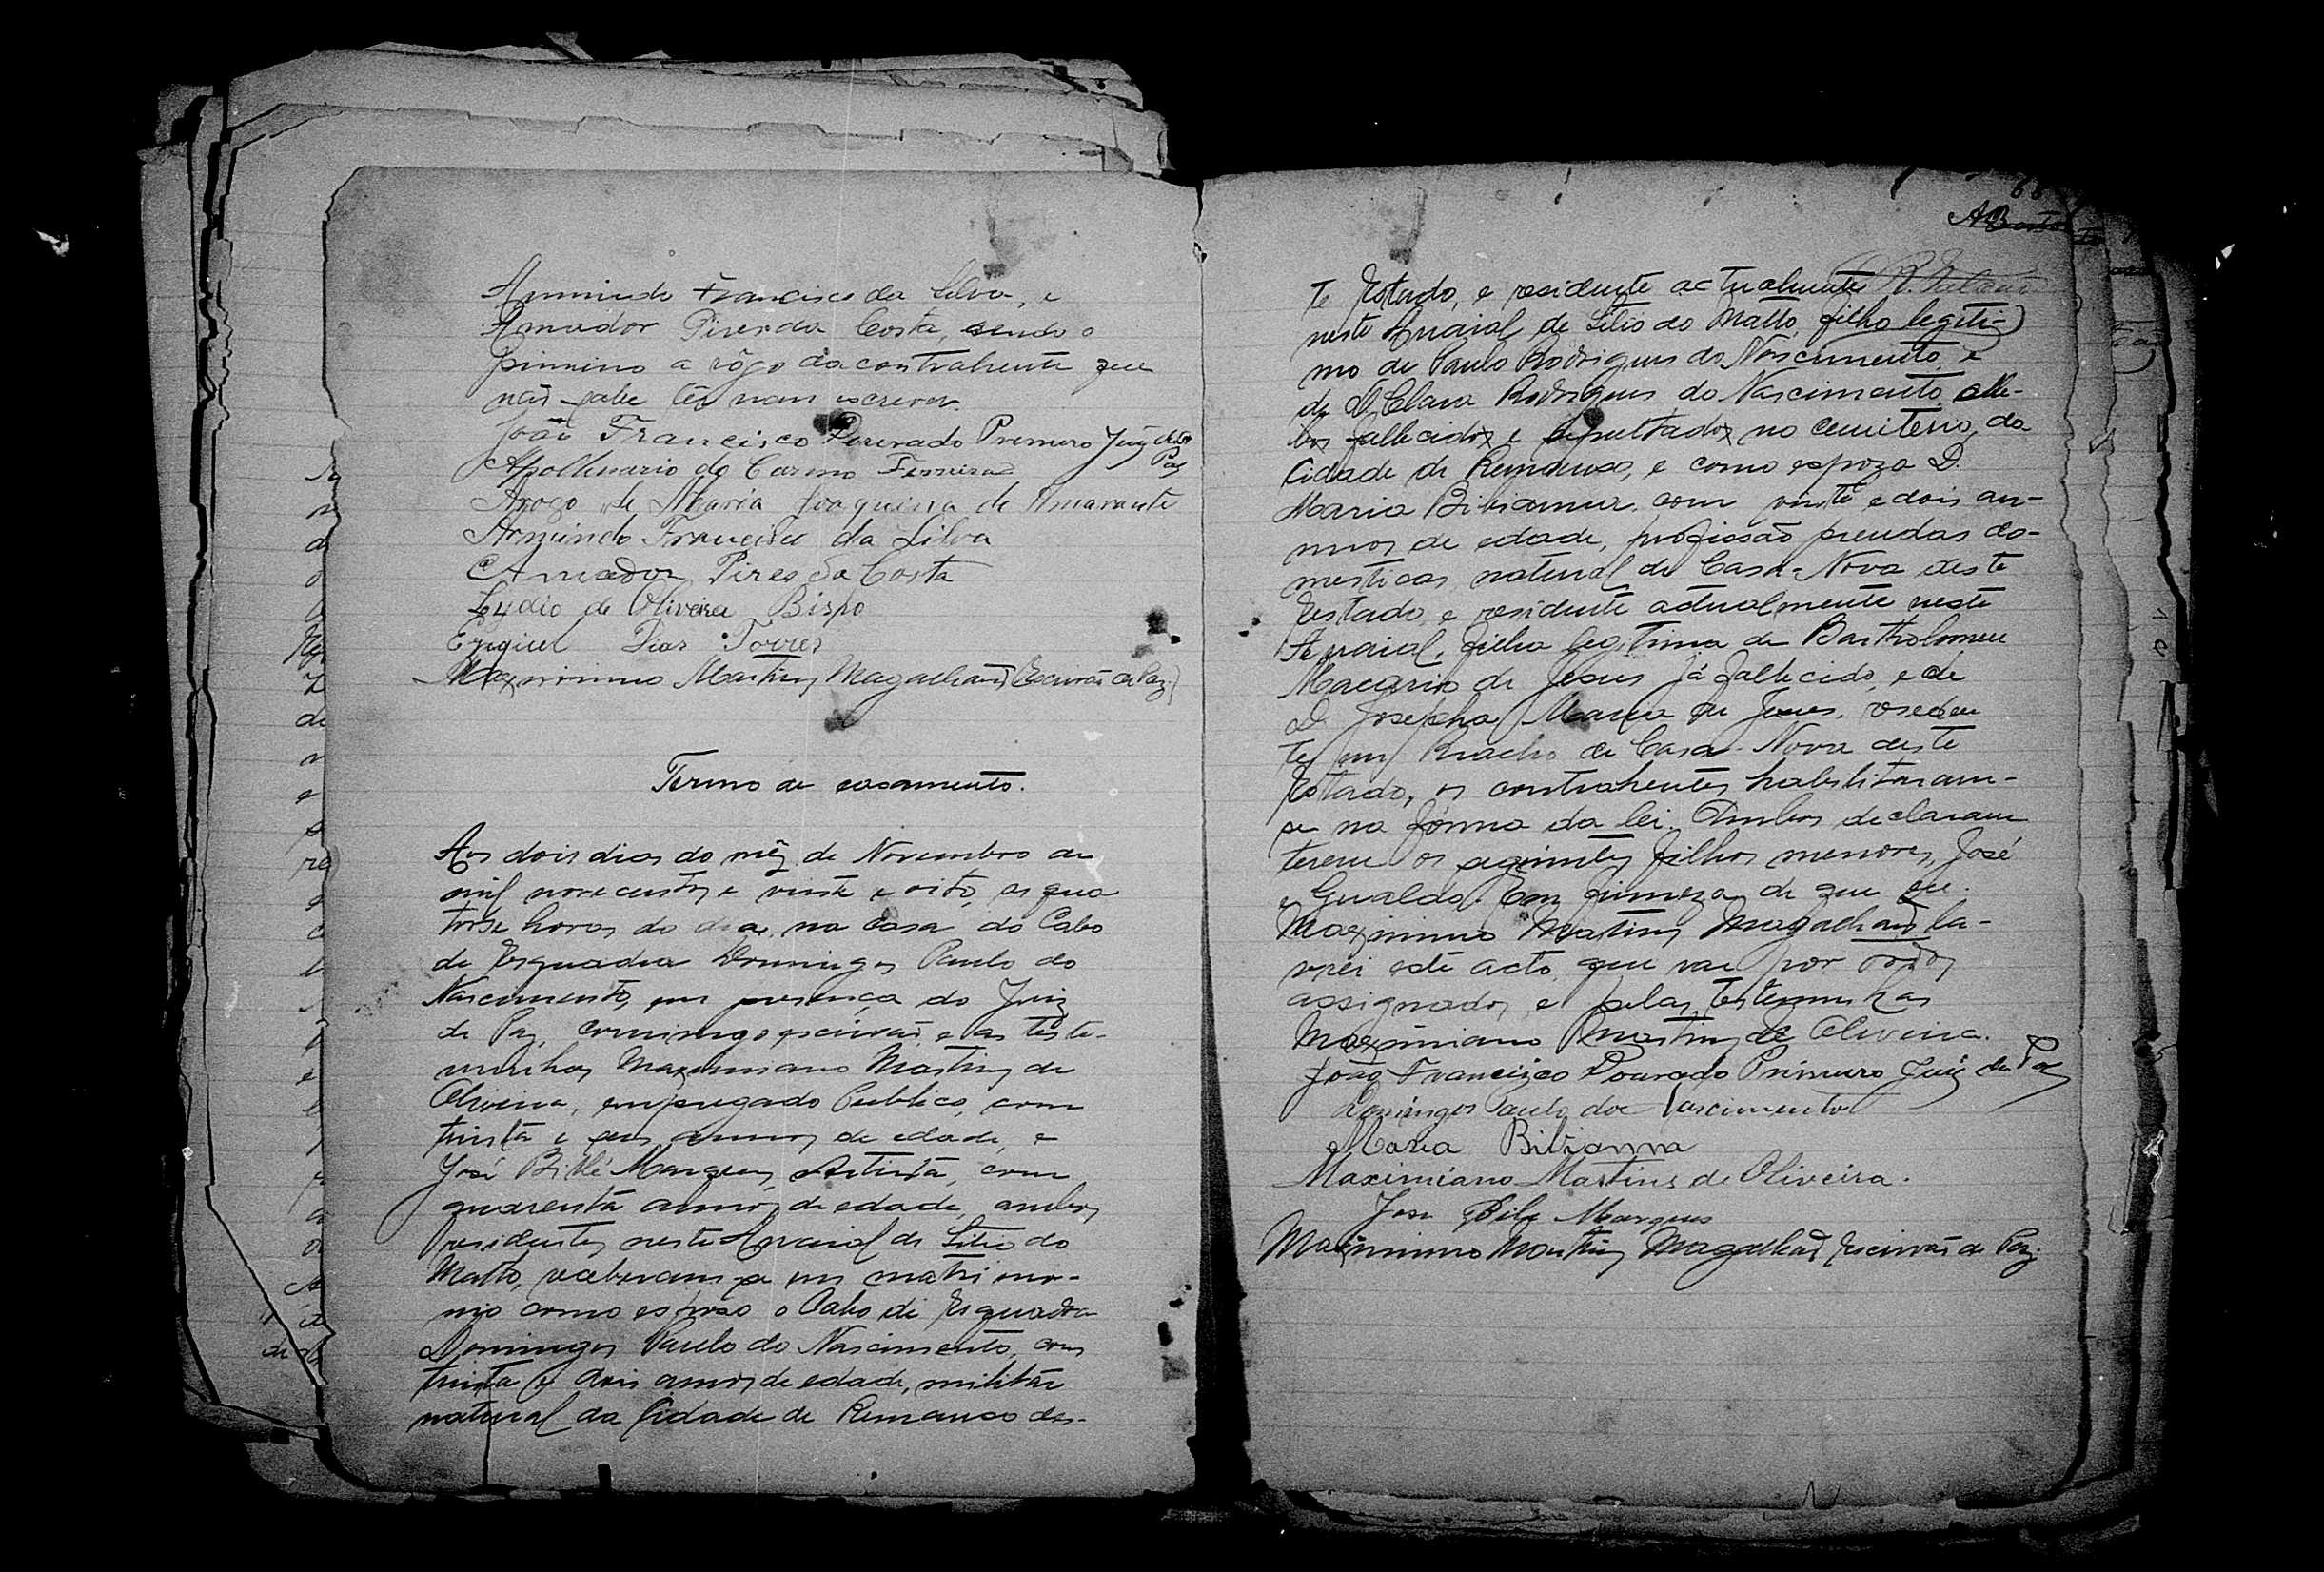 Armindo Francisco da Silva, e
Amador Pires da Costa, sendo o
primeiro a rôgo da contrahente que
não sabe lêr nem escrever.
João Francisco Dourado Primeiro Juiz de Paz
Apollinario do Carmo Ferreira
Arogo de Maria Joaquina de Amarante
Armindo Francisco da Silva
Amador Pires da Costa
Lydio de Oliveira Bispo
Ezequiel Dias Torres
Maximino Martins Magalhães Escrivão de Paz
Termo de casamento.
Aos dois dias do mêz de Novembro de
mil novecentos e vinte e oito, as qua
torse horas do dia, na casa do Cabo
de Esquadra Domingos Paulo do
Nascimento, em presença do Juiz
de Paz, commigo escrivão e as teste-
munhas Maximiano Martins de
Oliveira, empregado Publico, com
trinta e seis annos de edade, e
José Marques, Artista, com
quarenta annos de edade, ambos
residentes neste Arraial de Sitio do
Matto, receberam-se em matrimo-
nio como esposo o Cabo de Esquadra
Domingos Paulo do Nascimento, com
trinta e dois annos de edade, militar
natural da Cidade de Remanso des-
68
te Estado, e residente actualmente
neste Arraial de Sitio do Matto, filho legiti-
mo de Paulo Rodrigues do Nascimento e
de D. Clara Rodrigues do Nascimento, am-
bos fallecidos e sepultados no cemiterio da
Cidade de Remanso, e como espoza D.
Maria Bibianna com vinte e dois an-
nos de edade, profissão prendas do-
mesticas, natural de Casa-Nova deste
Estado, e residente actualmente neste
Arraial, filha legitima de Bartholomeu
Macario de Jesus já fallecido, e de
D. Josepha Maria de Jesus, residen
te em Riacho de Casa-Nova deste
Estado, os contrahentes habilitaram-
se na fórma da lei. Ambos declaram
terem os seguintes filhos menores, José
e Gualdo. Em firmeza de que eu.
Maximino Martins Magalhães la-
vrei este acto, que vae por todos
assignados, e pelas testemunhas
Maximiano Martins de Oliveira.
João Francisco Dourado Primeiro Juiz de Paz
Domingos Paulo do Nascimento
Maria Bibianna
Maximiano Martins de Oliveira.
Jose Marques
Maximino Martins Magalhães Escrivão de Paz.